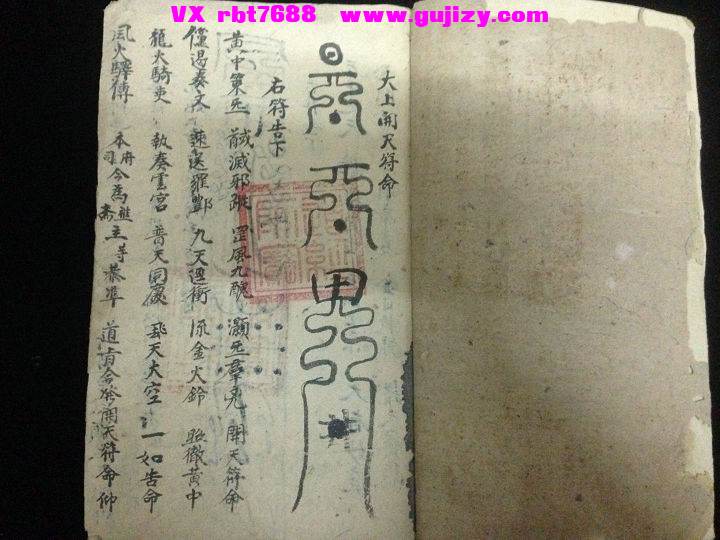 VX rbt7688 www.gujizy.com
大上開天符命
右符告下
黃中策炁 馘滅邪蹤 罡風九醜 灝炁羣兇 開天符命
奏文 速送羅酆 九天迴衝 流金火鈴 照徹黃中
龍火騎吏 執奏雲宮 普天同 天大空 一如告命
風火驛傳 本府司今為 齋主等恭準 道旨合發開天符命仰